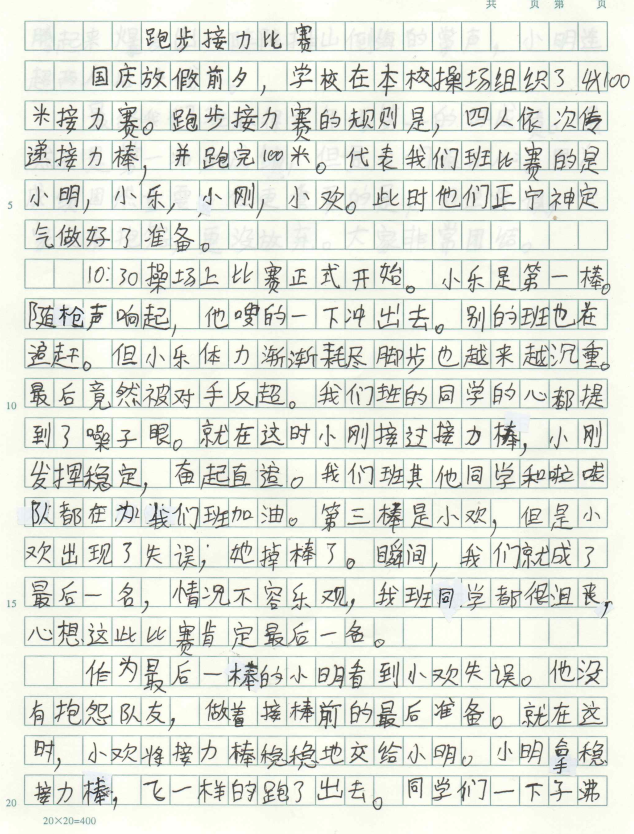 共 页 第 页
跑步接力比赛
国庆放假前夕，学校在本校操场组织了4x100
米接力赛。跑步接力赛的规则是，四人依次传
递接力棒，并跑完100米。代表我们班比赛的是
5 小明，小乐，小刚，小欢。此时他们正宁神定
气做好了准备。
10:30操场上比赛正式开始。小乐是第一棒。
随枪声响起，他嗖的一下冲出去。别的班也在
追赶。但小乐体力渐渐耗尽脚步也越来越沉重。
10 最后竟然被对手反超。我们班的同学的心都提
到了嗓子眼。就在这时小刚接过接力棒，小刚
发挥稳定，奋起直追。我们班其他同学和啦啦
队都在为我们班加油。第三棒是小欢，但是小
欢出现了失误；她掉棒了。瞬间，我们就成了
15 最后一名，情况不容乐观，我班同学都很沮丧，
心想这些比赛肯定最后一名。
作为最后一棒的小明看到小欢失误。他没
有抱怨队友，做着接棒前的最后准备。就在这
时，小欢将接力棒稳稳地交给小明。小明拿稳
20 接力棒，飞一样的跑了出去。同学们一下子沸
20×20=400